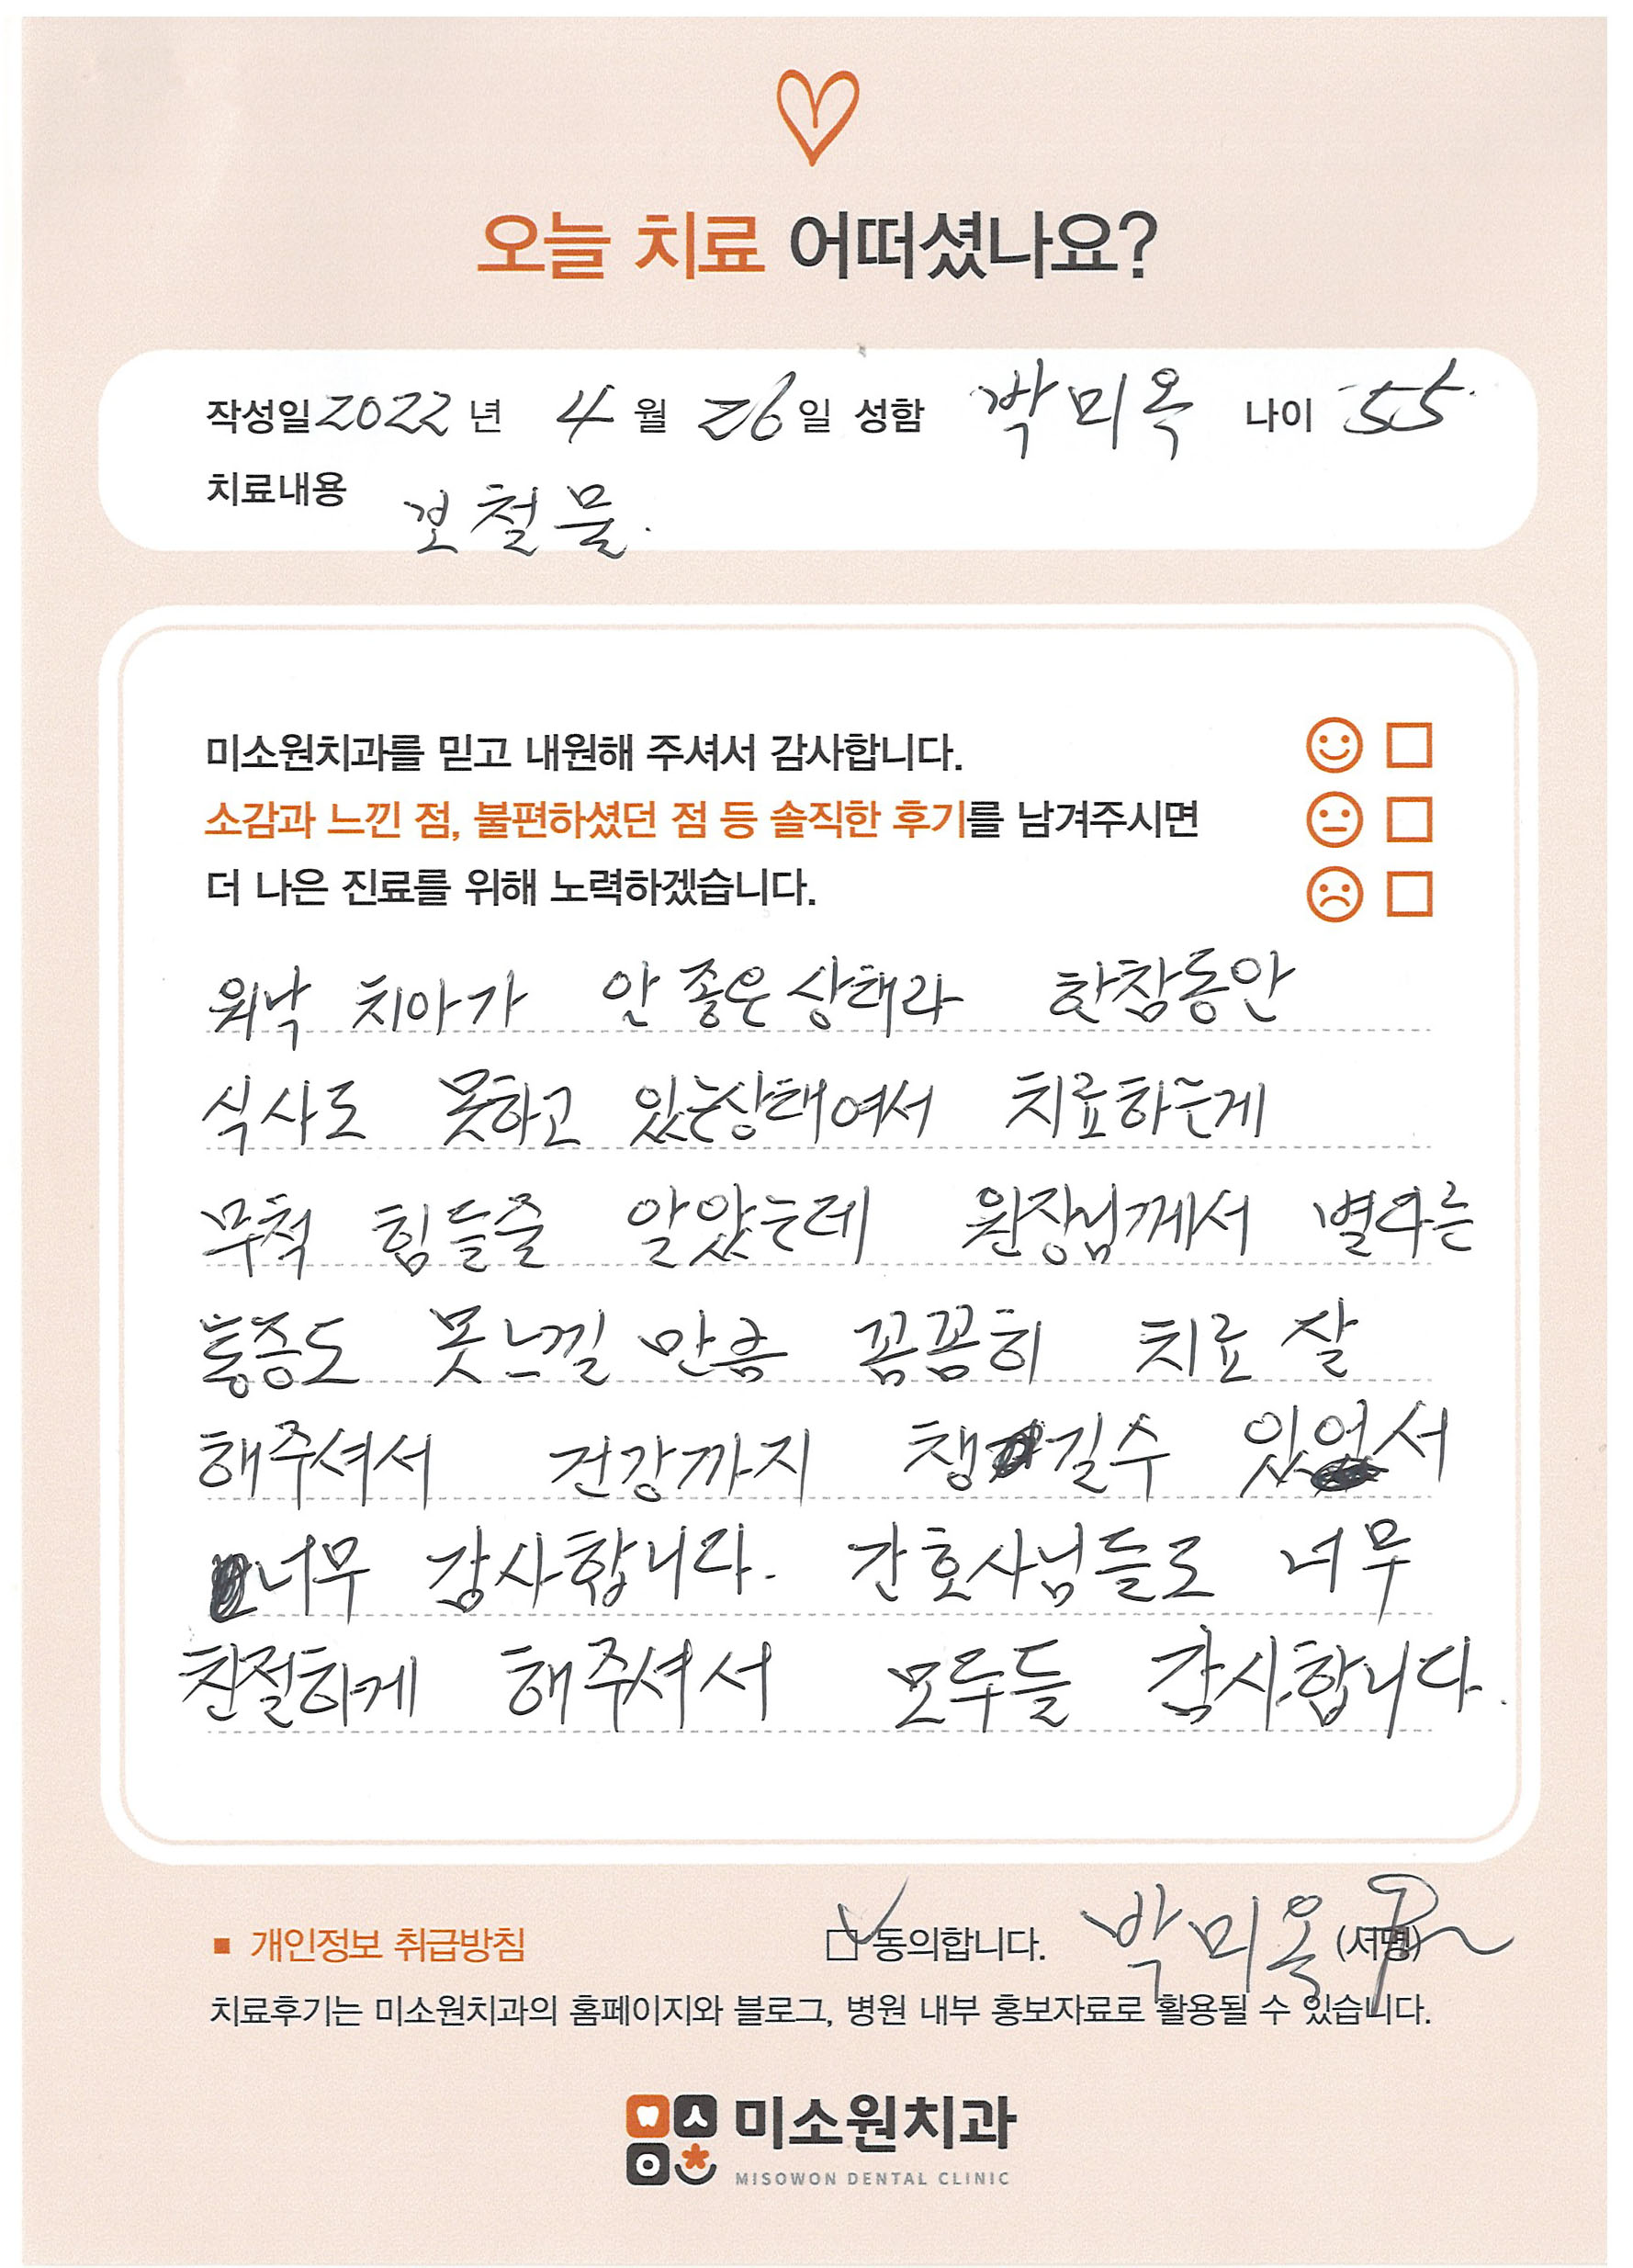 오늘 치료 어떠셨나요?
작성일 2022 년 4 월 26 일 성함 박미옥 나이 55
치료내용 보철물.
미소원치과를 믿고 내원해 주셔서 감사합니다.
소감과 느낀 점, 불편하셨던 점 등 솔직한 후기를 남겨주시면
더 나은 진료를 위해 노력하겠습니다.
워낙 치아가 안 좋은 상태라 한참동안
식사도 못하고 있는상태여서 치료하는게
무척 힘들줄 알았는데 원장님께서 별다는
통증도 못느낄 만큼 꼼꼼히 치료 잘
해주셔서 건강까지 챙길수 있어서
너무 감사합니다. 간호사님들도 너무
친절하게 해주셔서 모두들 감사합니다.
개인정보 취급방침 동의합니다. 박미옥 (서명)
치료후기는 미소원치과의 홈페이지와 블로그, 병원 내부 홍보자료로 활용될 수 있습니다.
미소원치과
MISOWON DENTAL CLINIC